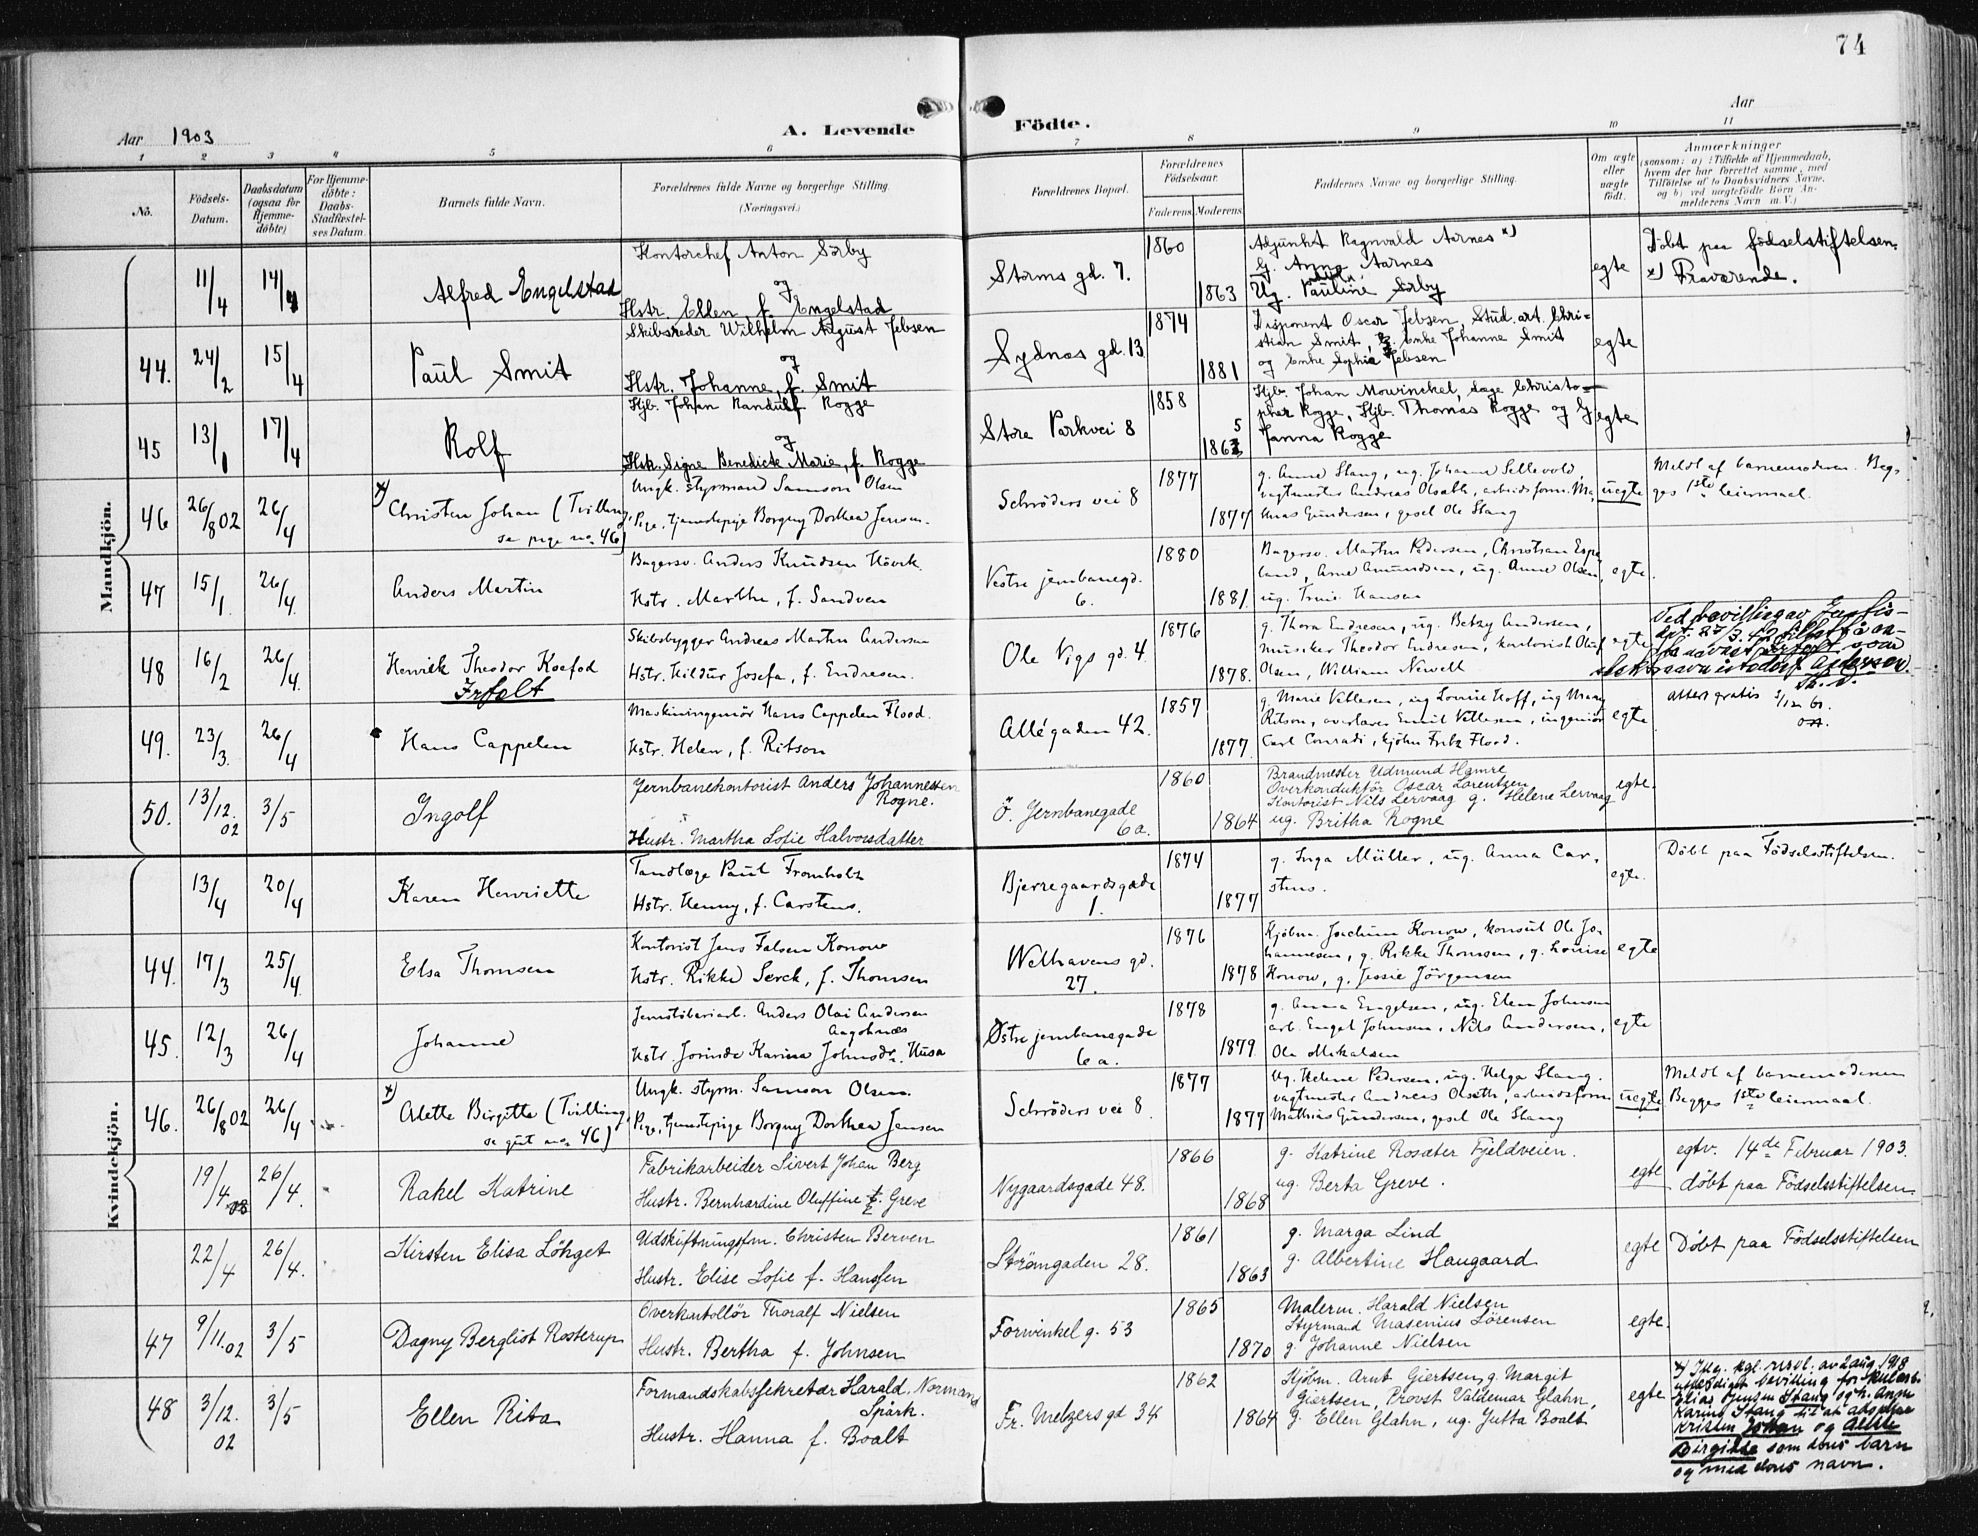 74
Aar 1903
A. Levende Födte.
Aar
1 2 3 4 5 6 7 8 9 10 11
No.
Födsels-Datum.
Daabsdatum (ogsaa for Hjemme-döbte)
For Hjemme-döbte: Daabs-Stadfæstel-ses Datum.
Barnets fulde Navn.
Forældrenes fulde Navne og borgerlige Stilling.
(Næringsvei.)
Forældrenes Bopæl.
Forældrenes Födselsaar.
Faderens Moderens
Faddernes Navne og borgerlige Stilling.
Om ægte eller uægte födt.
Anmærkninger
(saasom: a) i Tilfælde af Hjemmedaab, hvem der har forrettet samme, med Tilföielse af to Daabsvidners Navne, og b) ved uægtefödte Börn An-melderens Navn m. V.)
Mandkjön.
11/4 14/4 Alfred Engelstad
Kontorchef Anton Sörby
og
Hstr. Ellen f. Engelstad
Storms gd. 7.
1860
1863
Adjunkt Ragnvald Aarnes x)
G. Anna Aarnes
Ug. Pauline Sörby
egte
Döbt paa födselstiftelsen.
x) Fraværende.
44. 24/2 15/4 Paul Smit
Skibsreder Wilhelm August Jebsen
og
Hstr. Johanne, f. Smit
Sydnes gd. 13
1874
1881
Disponent Oscar Jebsen, Stud. art. Chri=
stian Smit, Enke Johanne Smit
og Enke Sophie Jebsen
egte
45 13/1 17/4 Rolf
Kjb. Johan Randulf Rogge
og
Hstr. Signe Benedicte Marie, f. Rogge
Store Parkvei 8
1858
5
1863
Kjb. Johan Mowinckel, Læge Christo=
pher Rogge, Kjb. Thomas Rogge og G
Janna Rogge
egte
46 26/8 02 26/4 x) Christen Johan (Tvilling,
se pige no 46)
Ungk. styrmand Samson Olsen
Pige, tjenestepige Borgny Dorthea Jensen.
Schröders vei 8
1877
1877
g. Anne Stang, ug. Johanne Sellevold,
vagtmester Andreas Olseth, arbeidsform. Ma,
thias Gundersen, gesel Ole Stang
uegte
Meldt af barnemoderen. Beg,
ges 1ste leiermaal.
47 15/1. 26/4. Anders Martin
Bagersv. Anders Knudsen Hövik
Hstr. Marthe, f. Sandven
Vestre jernbanegd.
6.
1880
1881.
Bagersv. Martin Pedersen, Christian Espe
land, Arne Amundsen, ug. Anne Olsen,
ug. Trine Hansen
egte.
48 16/2 26/4. Henrik Theodor Koefod
Irfolt
Skibsbygger Andreas Martin Andersen
Hstr. Hildur Josefa, f. Endresen.
Ole Vigs gd. 4.
1876
1878.
g. Thora Endresen, ug. Betzy Andersen,
musiker Theodor Endresen, kontorist Oluf
Olsen, William Newell
egte
Ved bevilling av Justis-
dpt. 27/3.42
49. 23/3. 26/4 Hans Cappelen
Maskiningeniör Hans Cappelen Flood.
Hstr. Helen, f. Ritson
Allégaden 42.
1857
1877.
g. Marie Vettesen, ug Lovise Hoff, ug Mary
Ritson, overlærer Emil Vettesen, ingeniör
Carl Conradi, kjöbm Fritz Flood.
egte
attest gratis
50. 13/12. 02 3/5 Ingolf
Jernbanekontorist Anders Johannessen
Rogne.
Hustr. Martha Sofie Halvorsdatter
Ö. Jernbanegade
6a.
1860
1864
Brandmester Udmund Hamre
Overkonduktör Oscar Lorentzen
Kontorist Nils Lervaag g. Helene Lervaag
ug. Britha Rogne
egte.
Kvindekjön.
13/4 20/4 Karen Henriette
Tandlæge Paul Fromholtz
Hstr. Henny, f. Carstens.
Bjerregaardsgade
1.
1874
1877
g. Inga Müller, ug. Anna Car,
stens.
egte.
Döbt paa Födselsstiftelsen.
44. 17/3 25/4. Elsa Thomsen
Kontorist Jens Falsen Konow
Hstr. Rikke Serck, f. Thomsen
Welhavens gd.
27.
1876
1878
Kjöbm. Joachim Konow, konsul Ole Jo-
hannesen, g. Rikke Thomsen, g. Louise
Konow, g. Jessie Jörgensen
egte
45. 12/3 26/4 Johanne
Jernstöberiarb. Anders Olai Andersen
Aagotnæs
Hstr. Jorinde Karina Johnsdr. Husa
Østre jernbanegade
6 a.
1878
1879.
g. Anna Engelsen, ug. Elen Johnsen
arb. Engel Johnsen, Nils Andersen,
Ole Mikalsen
egte
46. 26/8 02 26/4 x) Alette Birgitte (Tvilling,
se gut no. 46)
Ungk. styrm. Samson Olsen.
Pige, tjenestepige Borgny Dorthea Jensen
Schröders vei 8.
1877
1877
Ug. Helene Pedersen, ug. Helga Stang.
vagtmester Andreas Olseth, arbeidsform
Mathias Gundersen, gesel Ole Stang
uegte
Meldt af barnemoderen
Begges 1ste leiermaal.
19/4 26/4. Rakel Katrine
Fabrikarbeider Sivert Johan Berg
Hustr. Bernhardine Oluffine f. Greve
Nygaardsgade 48.
1866
1868
g. Katrine Rosæter Fjeldveien.
ug. Berta Greve.
egte
egtv. 14de Februar 1903.
döbt paa Födselsstiftelsen.
22/4 26/4. Kirsten Elisa Löhget
Udskiftningsfm. Christen Berven
Hustr. Elise Sofie f. Hanssen
Strömgaden 28.
1861
1863
g. Marga Lind
g. Albertine Haugaard
egte
Döbt paa Födselsstiftelsen
47 9/11.02 3/5 Dagny Bergliot Rosterup
Overkontollör Thoralf Nielsen
Hustr. Bertha f. Johnsen
Forwinkel g. 53
1865
1870
Malerm. Harald Nielsen
Styrmand Masenius Sörensen
g. Johanne Nielsen
egte.
48 3/12. 02 3/5 Ellen Rita
Formandskabssekretær Harald Normand
Spårk.
Hustr. Hanna f. Boalt
Fr. Meltzers gd 34
1862
1864
Kjöbm. Arnt Giertsen, g. Margit
Giertsen, Provst Valdemar Glahn,
g. Ellen Glahn, ug. Jutta Boalt
egte
x) Ifg. kgl. resol. av 2 aug. 1918
meddelt bevilling for
Elias Jensen Stang og h. Anne
Karine Stang til at adoptere
Kristen Johan og Alette
Birgitte som deres barn
og med deres navn.